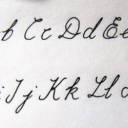 b Cc Dd Ee
i Jj Kk Ll